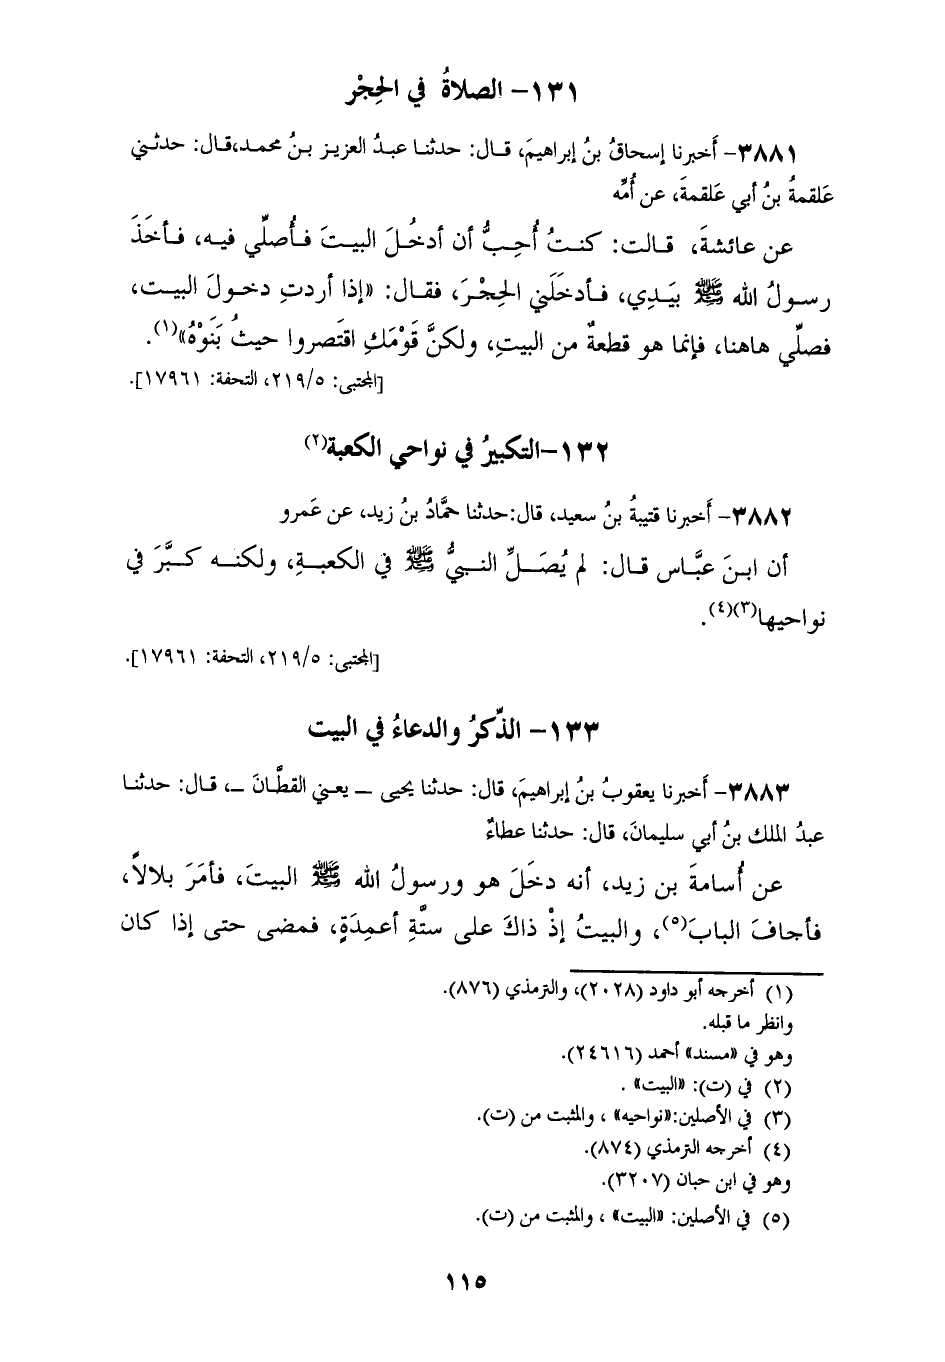 ١٣١- الصلاةُ في الحِجْر
٣٨٨١- أَخبرنا إسحاقُ بنُ إبراهيمَ، قال: حدثنا عبدُ العزيز بنُ محمد،قال: حدثني
عَلقمةُ بنُ أبي عَلقمةَ، عن أُمِّه
عن عائشةَ، قالت: كنتُ أُحِبُّ أن أدخُلَ البيتَ فأُصلِّي فيه، فأخَذَ
رسولُ الله ﷺ بيَدِي، فأدخَلَني الحِجْرَ، فقال: «إذا أردتِ دخولَ البيت،
فصلِّي هاهنا، فإنما هو قطعةٌ من البيتِ، ولكنَّ قَوْمَكِ اقتَصروا حيثُ بَنَوْهُ»(١).
[المجتبى: ٢١٩/٥، التحفة: ١٧٩٦١].
١٣٢-التكبيرُ في نواحي الكعبة(٢)
٣٨٨٢- أَخبرنا قتيبةُ بنُ سعيد، قال:حدثنا حمَّادُ بنُ زيد، عن عَمرو
أن ابنَ عبَّاس قال: لم يُصَلِّ النبيُّ ﷺ في الكعبةِ، ولكنه كبَّرَ في
نواحيها(٣)(٤).
[المجتبى: ٢١٩/٥، التحفة: ١٧٩٦١].
١٣٣- الذِّكرُ والدعاءُ في البيت
٣٨٨٣- أَخبرنا يعقوبُ بنُ إبراهيمَ، قال: حدثنا يحيى – يعني القطَّانَ –، قال: حدثنا
عبدُ الملك بنُ أبي سليمانَ، قال: حدثنا عطاءٌ
عن أُسامةَ بن زيد، أنه دخَلَ هو ورسولُ الله ﷺ البيتَ، فأمَرَ بلالاً،
فأجافَ البابَ(٥)، والبيتُ إذْ ذاكَ على ستَّةِ أعمِدَةٍ، فمضى حتى إذا كان
(١) أخرجه أبو داود (٢٠٢٨)، والترمذي (٨٧٦).
وانظر ما قبله.
وهو في «مسند» أحمد (٢٤٦١٦).
(٢) في (ت): «البيت» .
(٣) في الأصلين:«نواحيه» ، والمثبت من (ت).
(٤) أخرجه الترمذي (٨٧٤).
وهو في ابن حبان (٣٢٠٧).
(٥) في الأصلين: «البيت» ، والمثبت من (ت).
١١٥